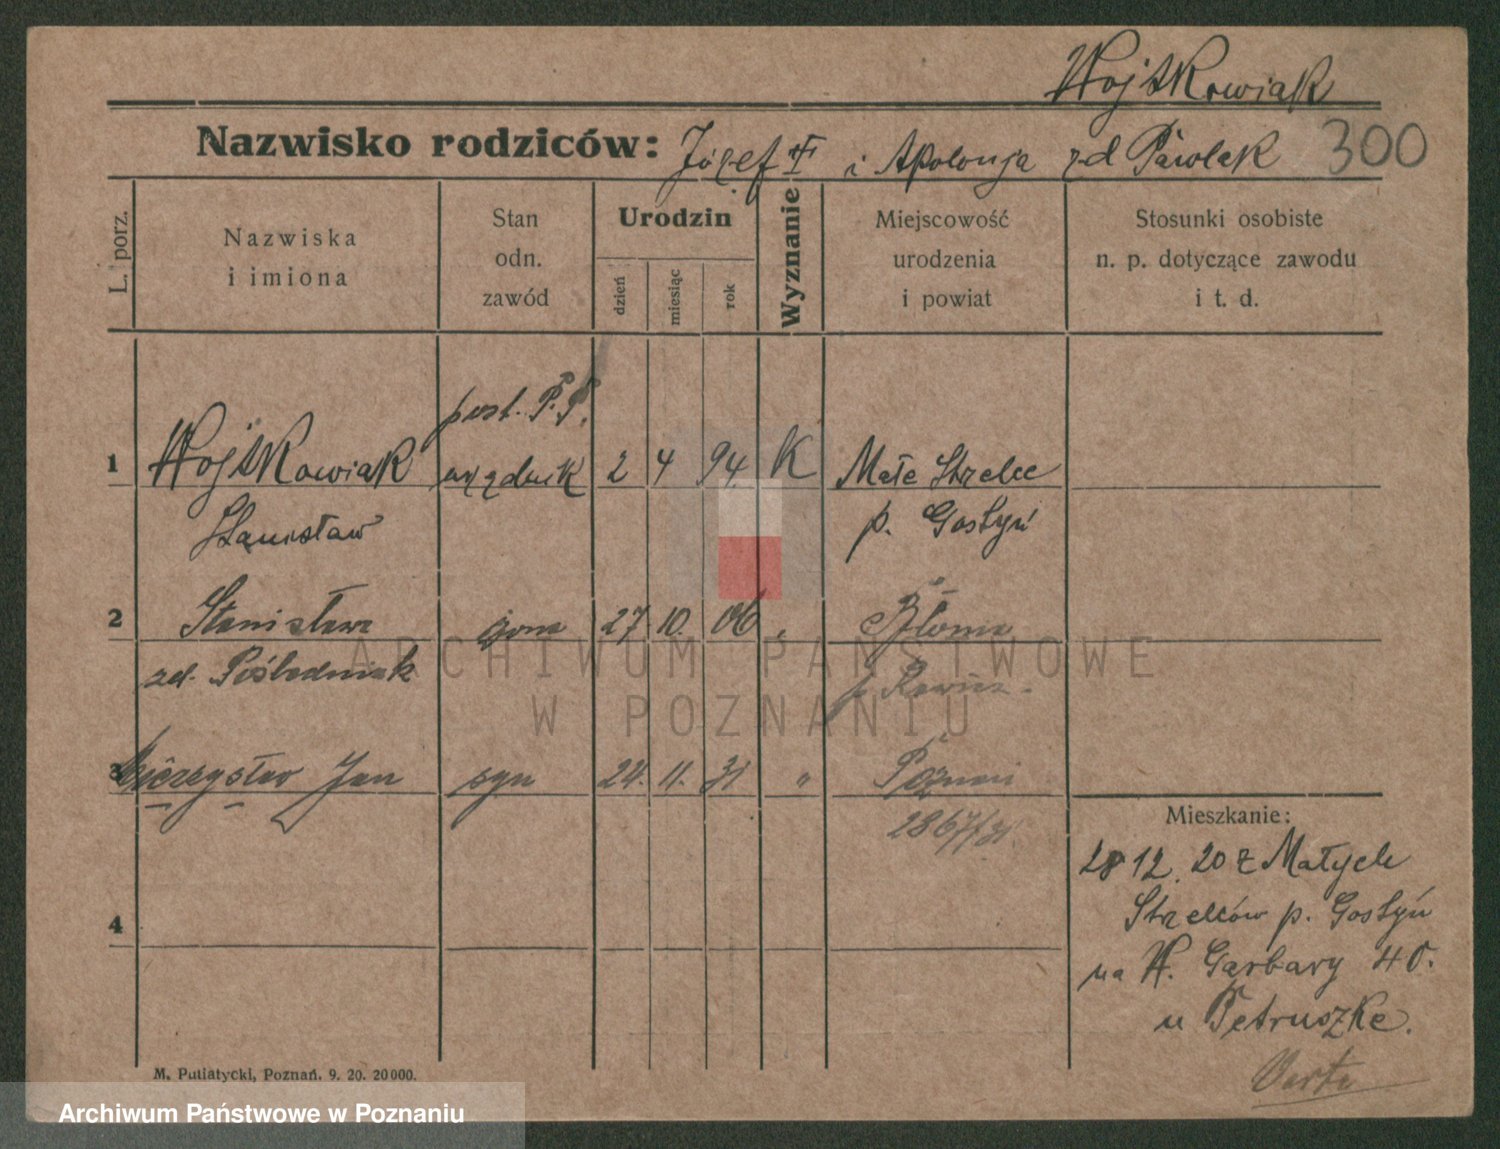 Wojtkowiak
Nazwisko rodziców: Józef i Apolonja zd Pawlak 300
L. porz.
Nazwiska
i imiona
Stan
odn.
zawód
Urodzin
dzień
miesiąc
rok
Wyznanie
Miejscowość
urodzenia
i powiat
Stosunki osobiste
n. p. dotyczące zawodu
i t. d.
post. P.P.
1 Wojtkowiak urzędnik 2 4 94. K Małe Strzelce
Stanisław p. Gostyń
2 Stanisława żona 27 10. 06 „ Błonie
zd. Pośledniak p. Rawicz.
3 Mieczysław Jan syn 24. 11. 31 " Poznań
2867/31.
4
Mieszkanie:
28 12. 20 z Małych
Strzelców p. Gostyń
na W. Garbary 40.
u Petruszke.
Verte
M. Putiatycki, Poznań. 9. 20. 20000.
ARCHIWUM PAŃSTWOWE
W POZNANIU
Archiwum Państwowe w Poznaniu